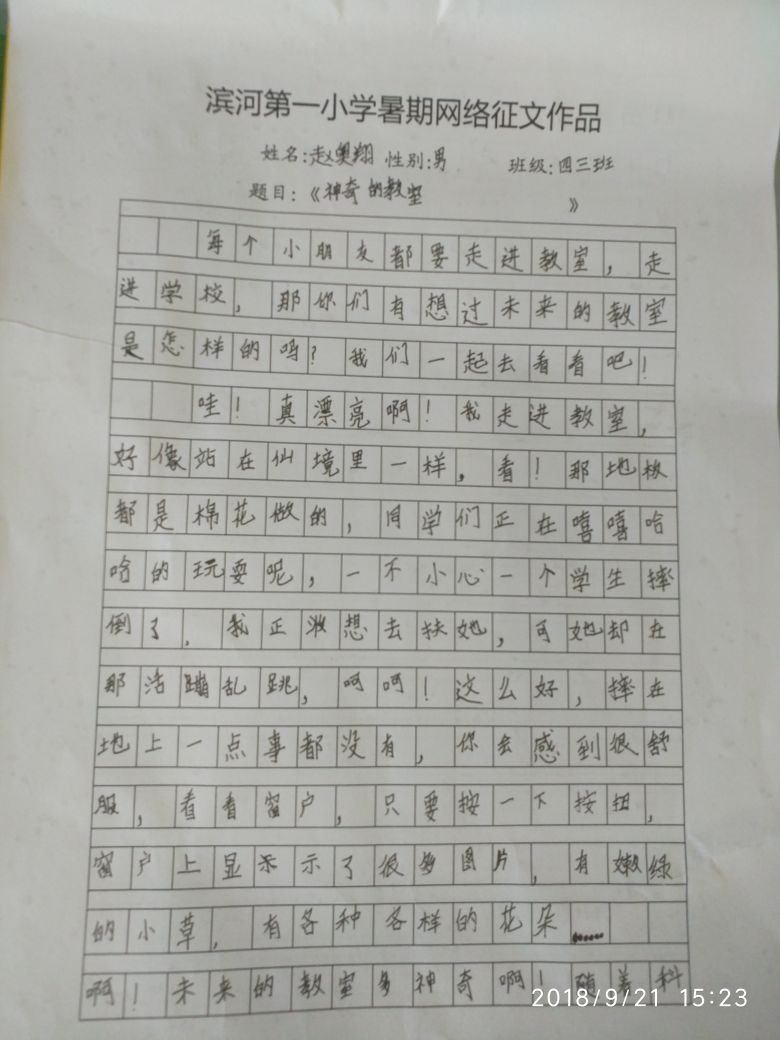 滨河第一小学暑期网络征文作品
姓名:赵奥翔 性别:男 班级:四三班
题目:《神奇的教室》
每个小朋友都要走进教室,走
进学校,那你们有想过未来的教室
是怎样的吗?我们一起去看看吧!
哇!真漂亮啊!我走进教室,
好像站在仙境里一样,看!那地板
都是棉花做的,同学们正在嘻嘻哈
哈的玩耍呢,一不小心一个学生摔
倒了,我正准想去扶她,可她却在
那活蹦乱跳,呵呵!这么好,摔在
地上一点事都没有,你会感到很舒
服,看看窗户,只要按一下按扭,
窗户上显示示了很多图片,有嫩绿
的小草,有各种各样的花朵……
啊!未来的教室多神奇啊!随着科
2018/9/21 15:23